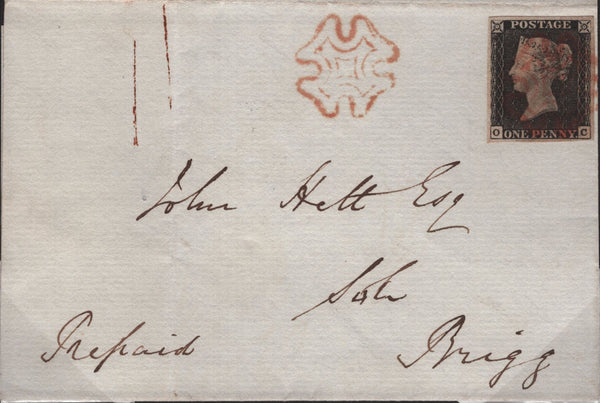 POSTAGE
O ONE PENNY C
John Hett Esq
Solr
Brigg
Prepaid